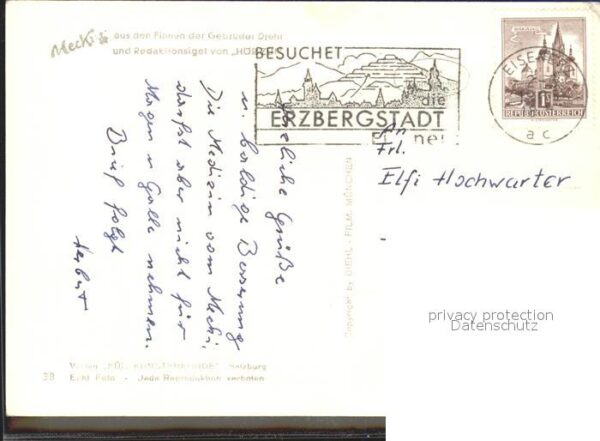 Mecki
aus den Filmen der Gebrüder Diehl
und Redaktionsigel von „HÖR
BESUCHET
die
ERZBERGSTADT
EISENERZ
a c
1S
REPUBLIK ÖSTERREICH
An
Frl.
Elfi Hochwarter
Herzliche Grüße
u. baldige Besserung
Die Medizin vom Mecki,
darfst aber nicht für
Magen u Galle nehmen.
Brief folgt
Herbert
Copyright by DIEHL-FILM, MÜNCHEN
privacy protection
Datenschutz
Verlag „FÜR KUNSTFREUNDE" Salzburg
38 Echt Foto - Jede Reproduktion verboten